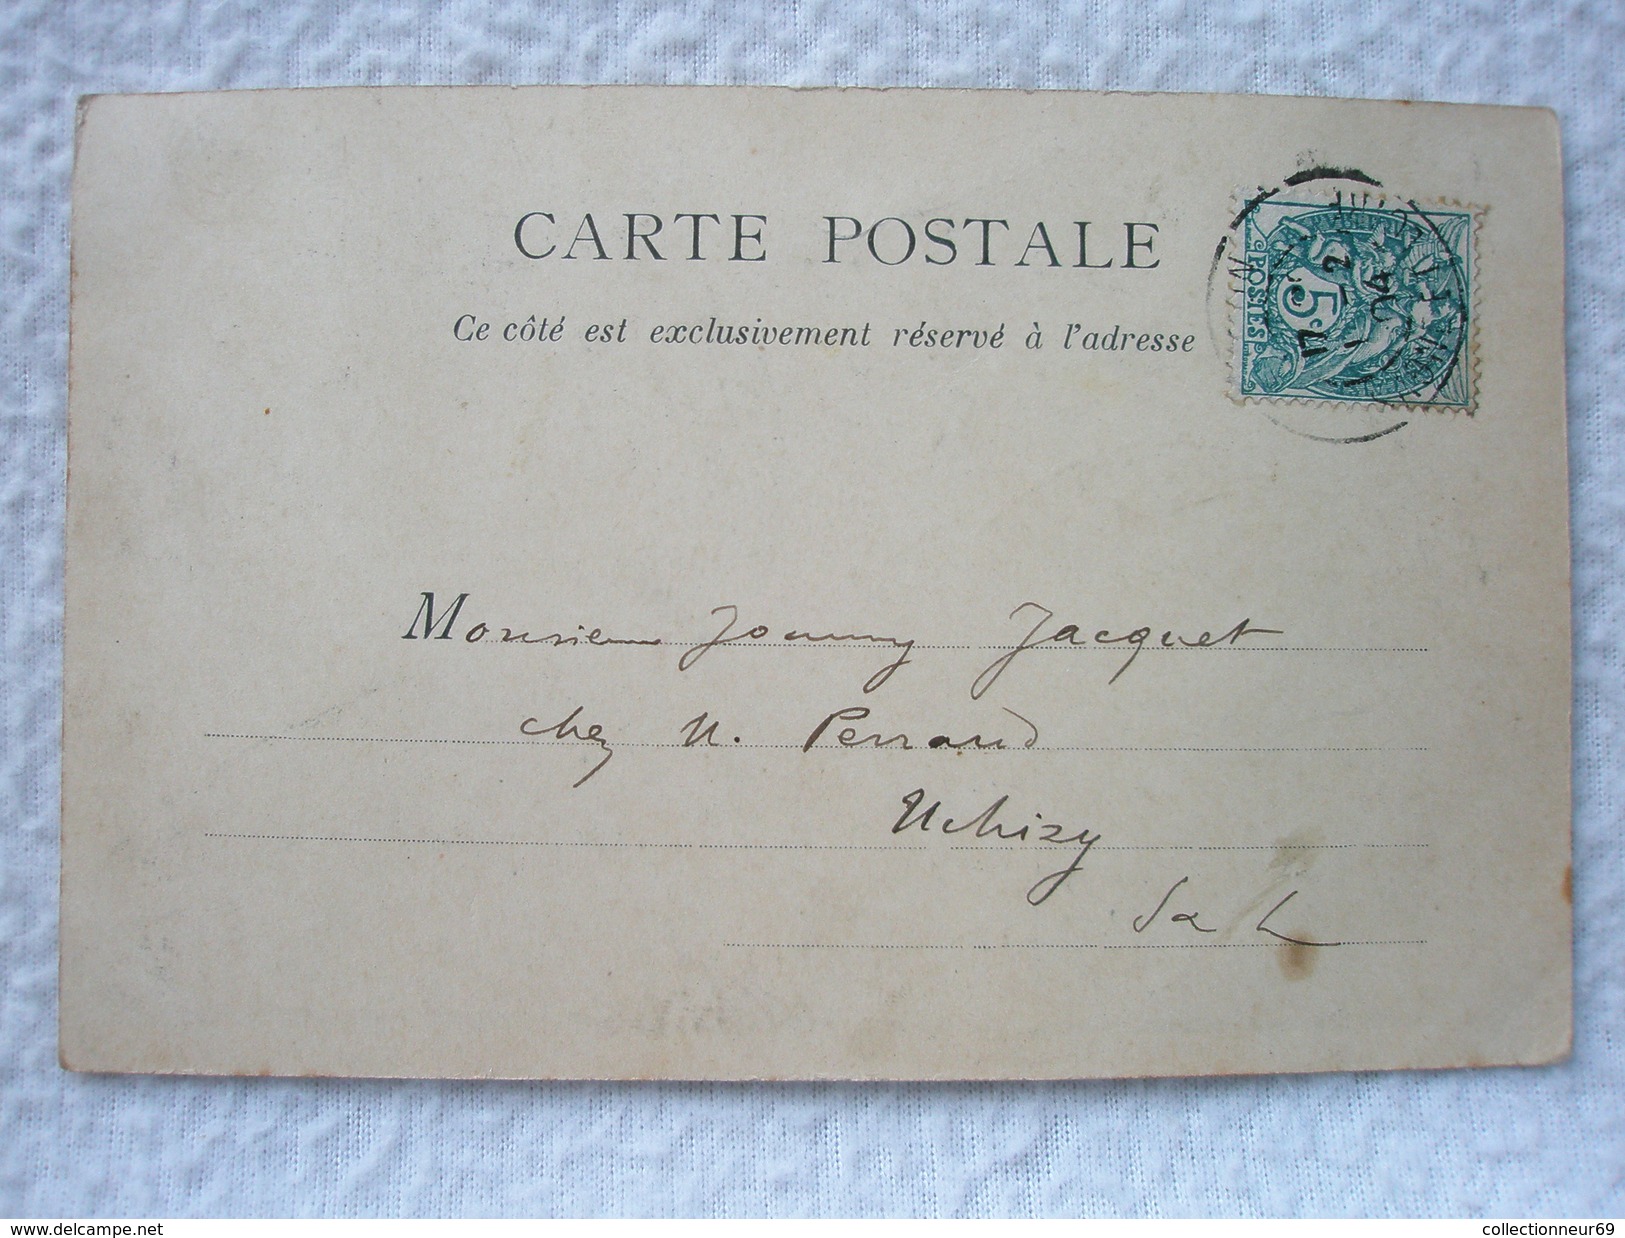 CARTE POSTALE
Ce côté est exclusivement réservé à l'adresse
POSTES
5c
17
2
04
Monsieur Joanny Jacquet
chez M. Perraud
Uchizy
S & L
www.delcampe.net
collectionneur69